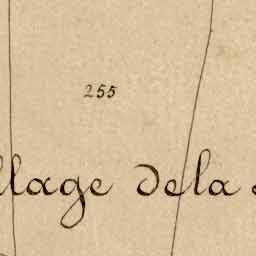 255
llage dela